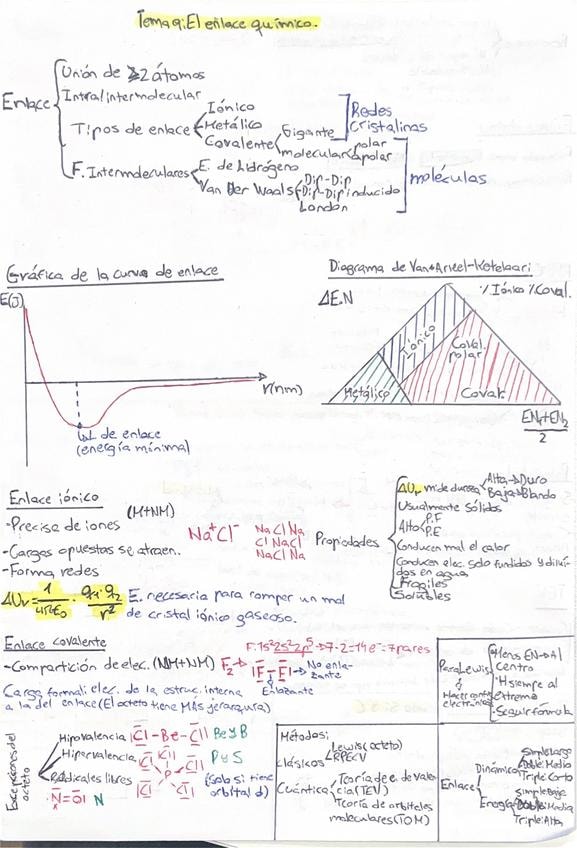 Tema 9: El enlace químico.
Enlace
Unión de ≥2 átomos
Intra/intermolecular
Tipos de enlace
Iónico
Metálico
Covalente
Gigante
molecular
polar
apolar
Redes
cristalinas
F. Intermoleculares
E. de hidrógeno
Van Der Waals
Dip-Dip
Dip-Dip inducido
London
moléculas
Gráfica de la curva de enlace
E(J)
r(nm)
L de enlace
(energía mínima)
Diagrama de Van Arkel-Ketelaar
ΔE.N
% Iónico % Coval.
Iónico
Coval.
polar
Metálico
Coval.
EN₁+EN₂
2
Enlace iónico
(M+NM)
-Precisa de iones
-Cargas opuestas se atraen.
-Forma redes
Na⁺Cl⁻
Na Cl Na
Cl Na Cl
Na Cl Na
Propiedades
ΔUr mide dureza
Alta→Duro
Baja→Blando
Usualmente sólidos
Alto
P.F
P.E
Conducen mal el calor
Conducen elec. solo fundidos y diluidos en agua
Frágiles
Solubles
ΔUr = 1/4πε₀ · q₁·q₂/r²
E. necesaria para romper un mol
de cristal iónico gaseoso.
Enlace covalente
-Compartición de elec. (NM+NM)
F: 1s²2s²2p⁵→7·2=14e⁻=7pares
F₂→ |F-F|
No enla-
zante
Enlazante
Carga formal: elec. de la estruc. interna
a la del enlace (El octeto tiene MÁS jerarquía)
Para Lewis
Menos EN→Al
Centro
H siempre al
extremo
Seguir fórmula
Excepciones del
octeto
Hipovalencia
|Cl-Be-Cl| Be y B
Hipervalencia
Cl Cl
P
Cl Cl Cl
P y S
(solo si tiene
orbital d)
Radicales libres
N=O| N
Métodos:
Clásicos
Lewis (octeto)
RPECV
Cuántica
Teoría de e. de valen-
cia (TEV)
Teoría de orbitales
moleculares (TOM)
Enlace
Dinámico
Simple: Largo
Doble: Medio
Triple: Corto
Energía
Simple: Baja
Doble: Media
Triple: Alta